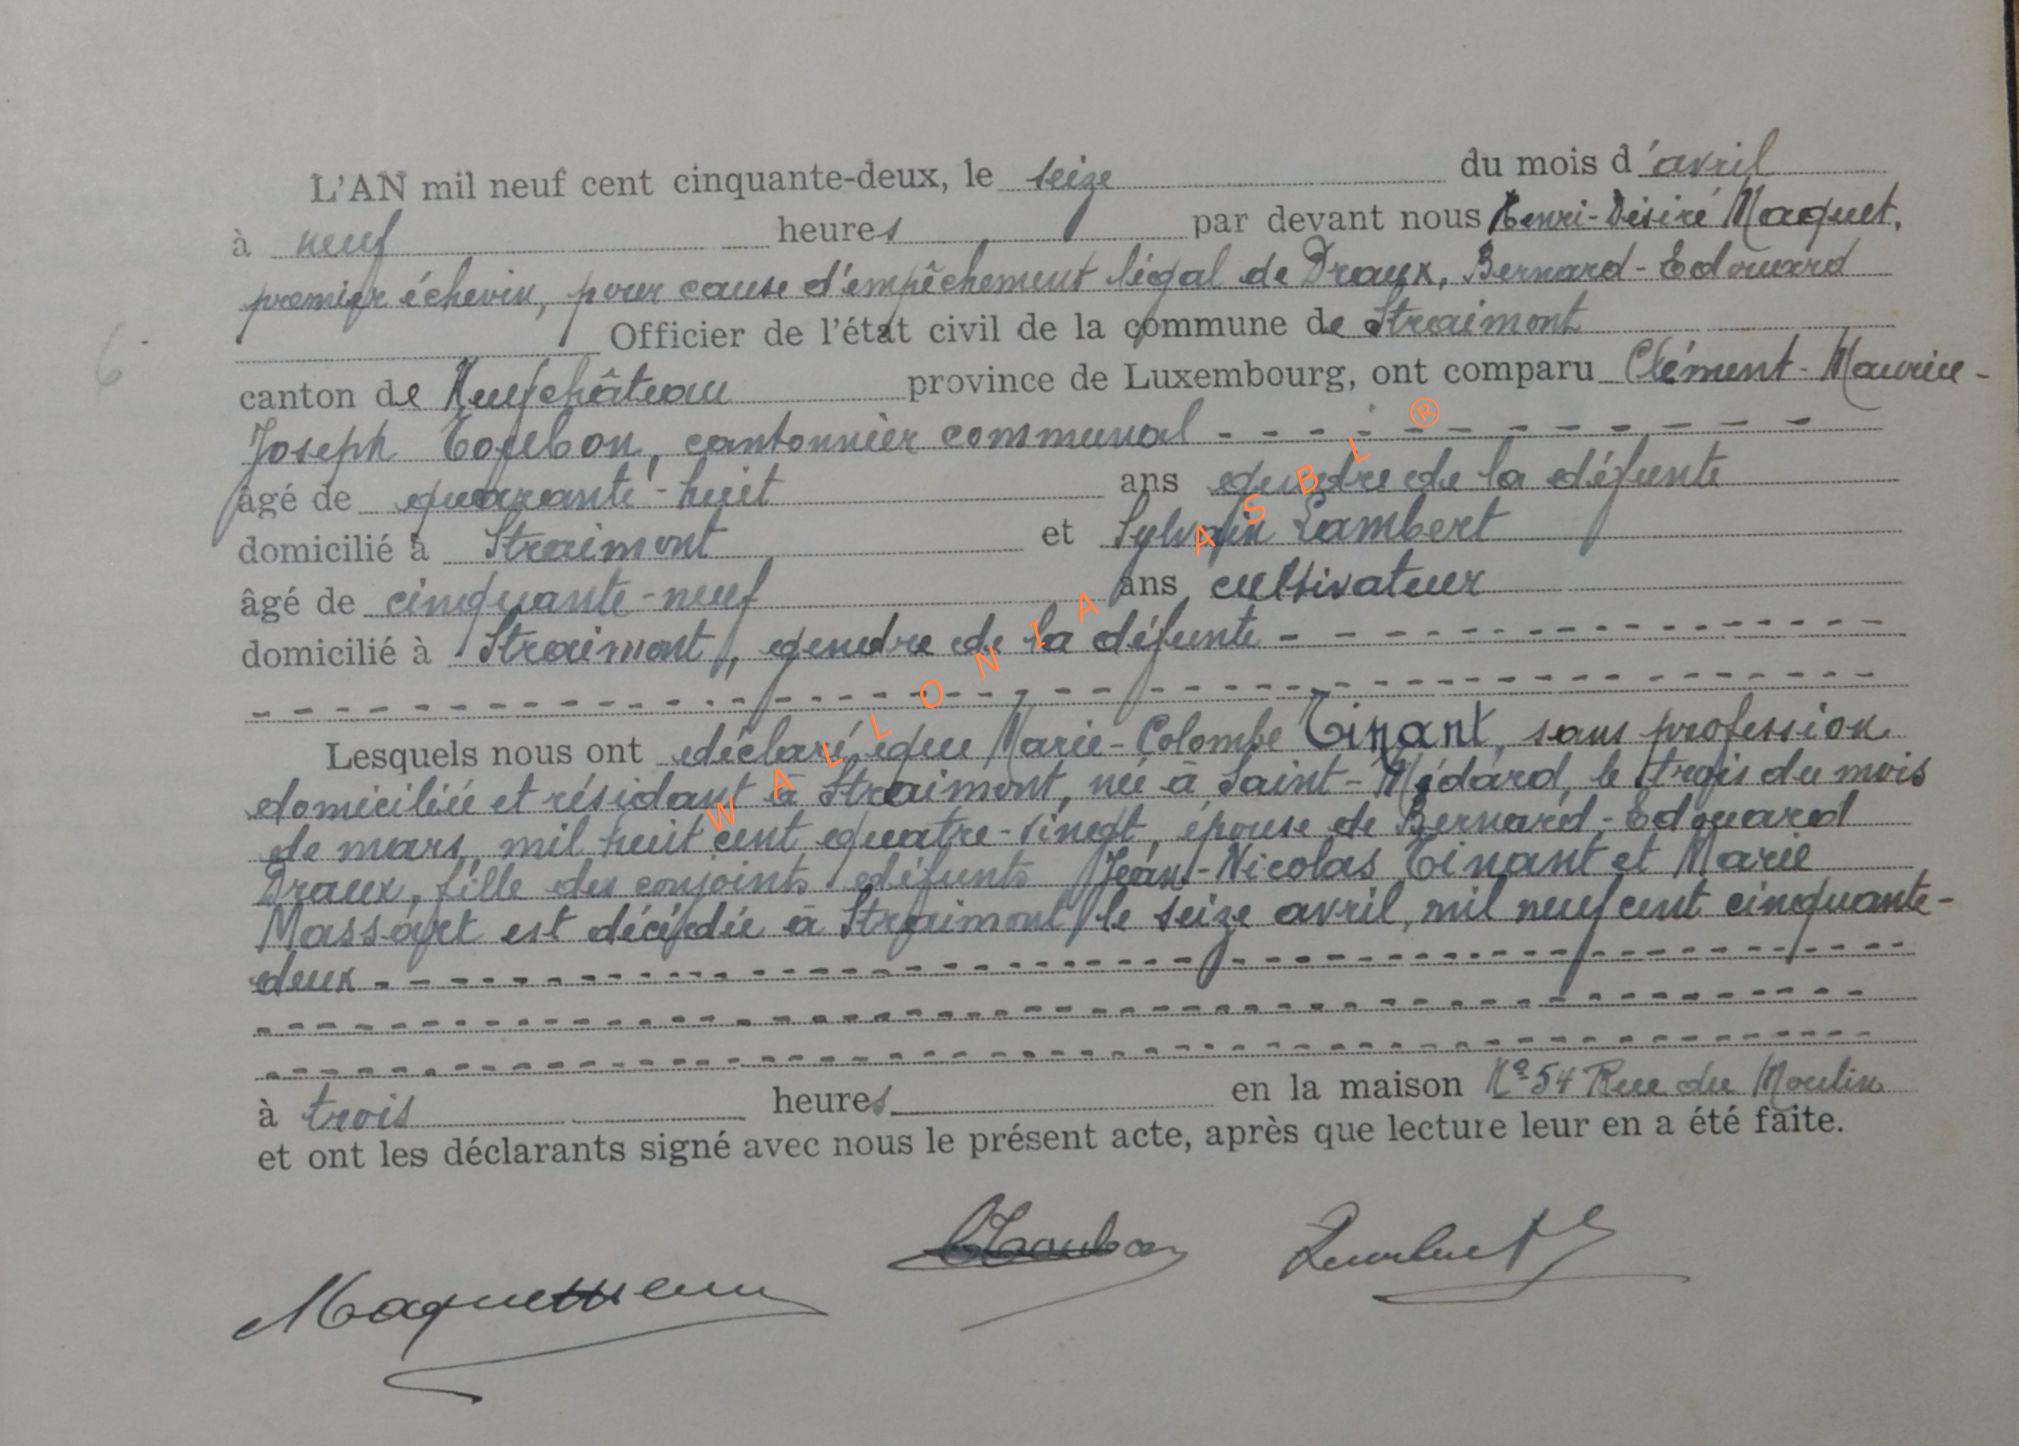 L'AN mil neuf cent cinquante-deux, le seize du mois d'avril
à neuf heures par devant nous Henri-Désiré Maquet,
premier échevin, pour cause d'empêchement légal de Draux, Bernard-Edouard
Officier de l'état civil de la commune de Straimont
6
canton de Neufchâteau province de Luxembourg, ont comparu Clément-Maurice-
Joseph Toubon, cantonnier communal
âgé de quarante-huit ans gendre de la défunte
domicilié à Straimont et Sylvain Lambert
âgé de cinquante-neuf ans cultivateur
domicilié à Straimont, gendre de la défunte
Lesquels nous ont déclaré que Marie-Colombe Tinant, sans profession
domiciliée et résidant à Straimont, née à Saint-Médard, le trois du mois
de mars, mil huit cent quatre-vingt, épouse de Bernard-Edouard
Draux, fille des conjoints défunts Jean-Nicolas Tinant et Marie
Massart est décédée à Straimont le seize avril, mil neuf cent cinquante-
deux
à trois heures en la maison N° 54 Rue du Moulin
et ont les déclarants signé avec nous le présent acte, après que lecture leur en a été faite.
WALLONIA ASBL ®